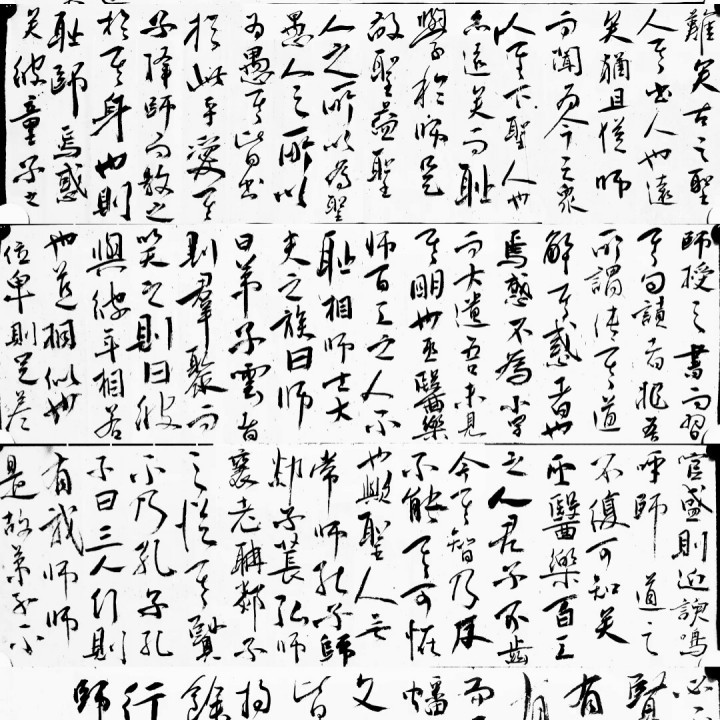 難矣古之聖
人其出人也遠
矣猶且從師
而問焉今之衆
人其下聖人也
亦遠矣而恥
學於師是
故聖益聖
人之所以為聖
愚人之所以
為愚其皆出
於此乎愛其
子擇師而教之
於其身也則
恥師焉惑
矣彼童子之
師授之書而習
其句讀者非吾
所謂傳其道
解其惑者也
焉惑不焉小學
而大遺吾未見
其明也巫醫樂
師百工之人不
恥相師士大
夫之族曰師
曰弟子雲者
則羣聚而
笑之則曰彼
與彼年相若
也道相似也
位卑則足羞
官盛則近諛嗚
呼師道之
不復可知矣
巫醫樂百工
之人君子不齒
今其智乃反
不能其可怪
也歟聖人無
常師孔子師
郯子萇弘師
襄老聃郯子
之徒其賢
不及孔子孔
子曰三人行則
有我師師
是故弟子不
必
賢
有
而
蟠
文
皆
拘
餘
行
師